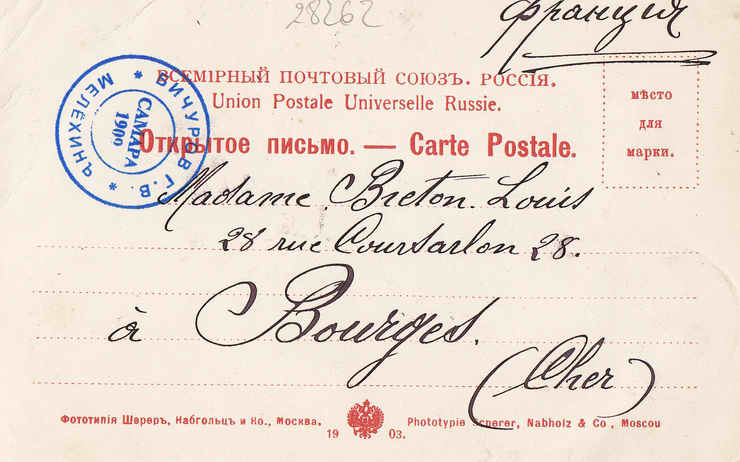 28262
Франция
ВСЕМІРНЫЙ ПОЧТОВЫЙ СОЮЗЪ. РОССІЯ.
Union Postale Universelle Russie.
Открытое письмо. — Carte Postale.
мѣсто
для
марки.
ВИЧУРОВ Г. В. * МЕЛЁХИНЪ *
САМАРА
1909
Madame Breton. Louis
28 rue Coursarlon 28.
à Bourges.
(Cher)
Фототипія Шереръ, Набгольцъ и Ко., Москва.
Phototypie Scherer, Nabholz & Co, Moscou
19 03.